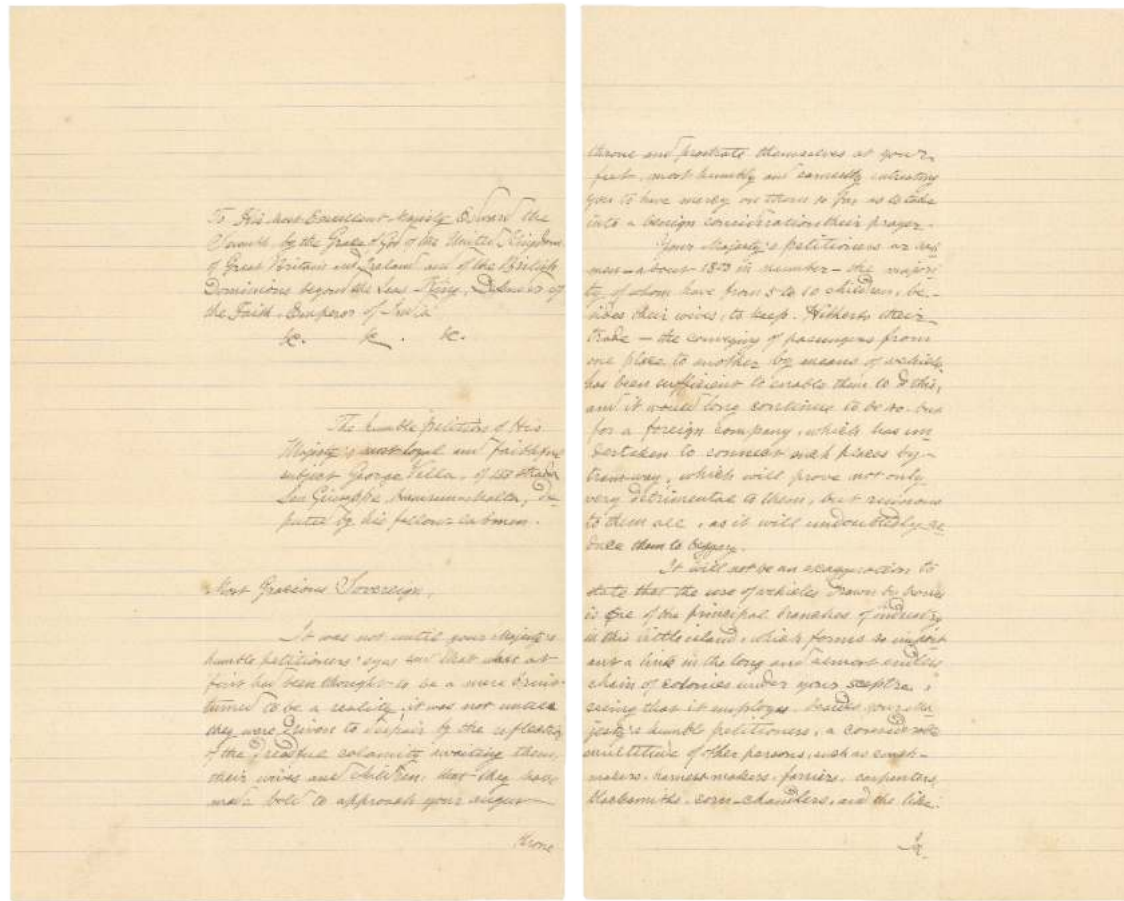 To His most Excellent Majesty Edward the
Seventh, by the Grace of God of the United Kingdom
of Great Britain and Ireland and of the British
Dominions beyond the Seas King, Defender of
the Faith, Emperor of India
&c. &c. &c.
The humble petition of His
Majesty's most loyal and faithful
subject George Vella, of 153 Strada
San Giuseppe, Hamrun, Malta, de-
puted by his fellow-cabmen.
Most Gracious Sovereign,
It was not until your Majesty's
humble petitioners' eyes saw that what at
first had been thought to be a mere
turned to be a reality; it was not until
they were driven to despair by the reflection
of the dreadful calamity awaiting them,
their wives and children, that they have
made bold to approach your august
throne
throne and prostrate themselves at your
feet, most humbly and earnestly entreating
you to have mercy on them so far as to take
into a benign consideration their prayer.
Your Majesty's petitioners are
men - about 1853 in number - the majori-
ty of whom have from 5 to 10 children, be-
sides their wives, to keep. Hitherto their
trade - the conveying of passengers from
one place to another by means of vehicles
has been sufficient to enable them to do this,
and it would long continue to be so but
for a foreign company, which has un-
dertaken to connect such places by
tramway, which will prove not only
very detrimental to them, but ruinous
to them all, as it will undoubtedly re-
duce them to beggary.
It will not be an exaggeration to
state that the use of vehicles drawn by horses
is one of the principal branches of industry
in this little island, which forms so import
ant a link in the long and almost endless
chain of colonies under your sceptre,
seeing that it employs, besides your Ma-
jesty's humble petitioners, a considerable
multitude of other persons, such as coach-
makers, harness makers, farriers, carpenters,
blacksmiths, corn-chandlers, and the like.